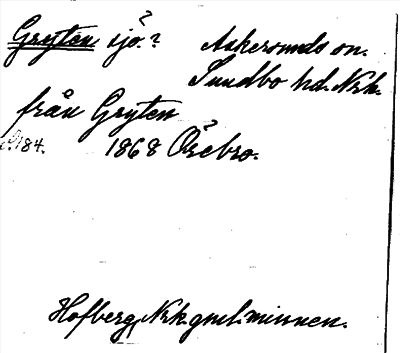 Gryten sjö? ?
Askersunds sn.
Sundbo hd. Nrk.
från Gryten
S.184. 1868 Örebro.
Hofberg, Nrk. gml. minnen.